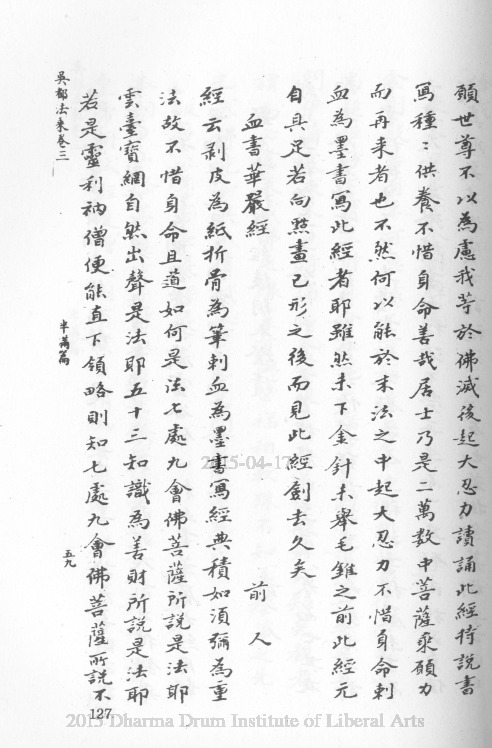 願世尊不以為慮我等於佛滅後起大忍力讀誦此經持說書
寫種種供養不惜身命善哉居士乃是二萬數中菩薩乘願力
而再来者也不然何以能於末法之中起大忍力不惜身命刺
血為墨書寫此經者耶雖然未下金針未舉毛錐之前此經元
自具足若向點畫已形之後而見此經劍去久矣
血書華嚴經
前人
經云剥皮為紙折骨為筆刺血為墨書寫經典積如須彌為重
法故不惜身命且道如何是法七處九會佛菩薩所說是法耶
雲臺寶網自然出聲是法耶五十三知識為善財所說是法耶
若是靈利衲僧便能直下領略則知七處九會佛菩薩所說不
吳都法乘卷三
半滿篇
五九
127
2015-04-17
2015 Dharma Drum Institute of Liberal Arts